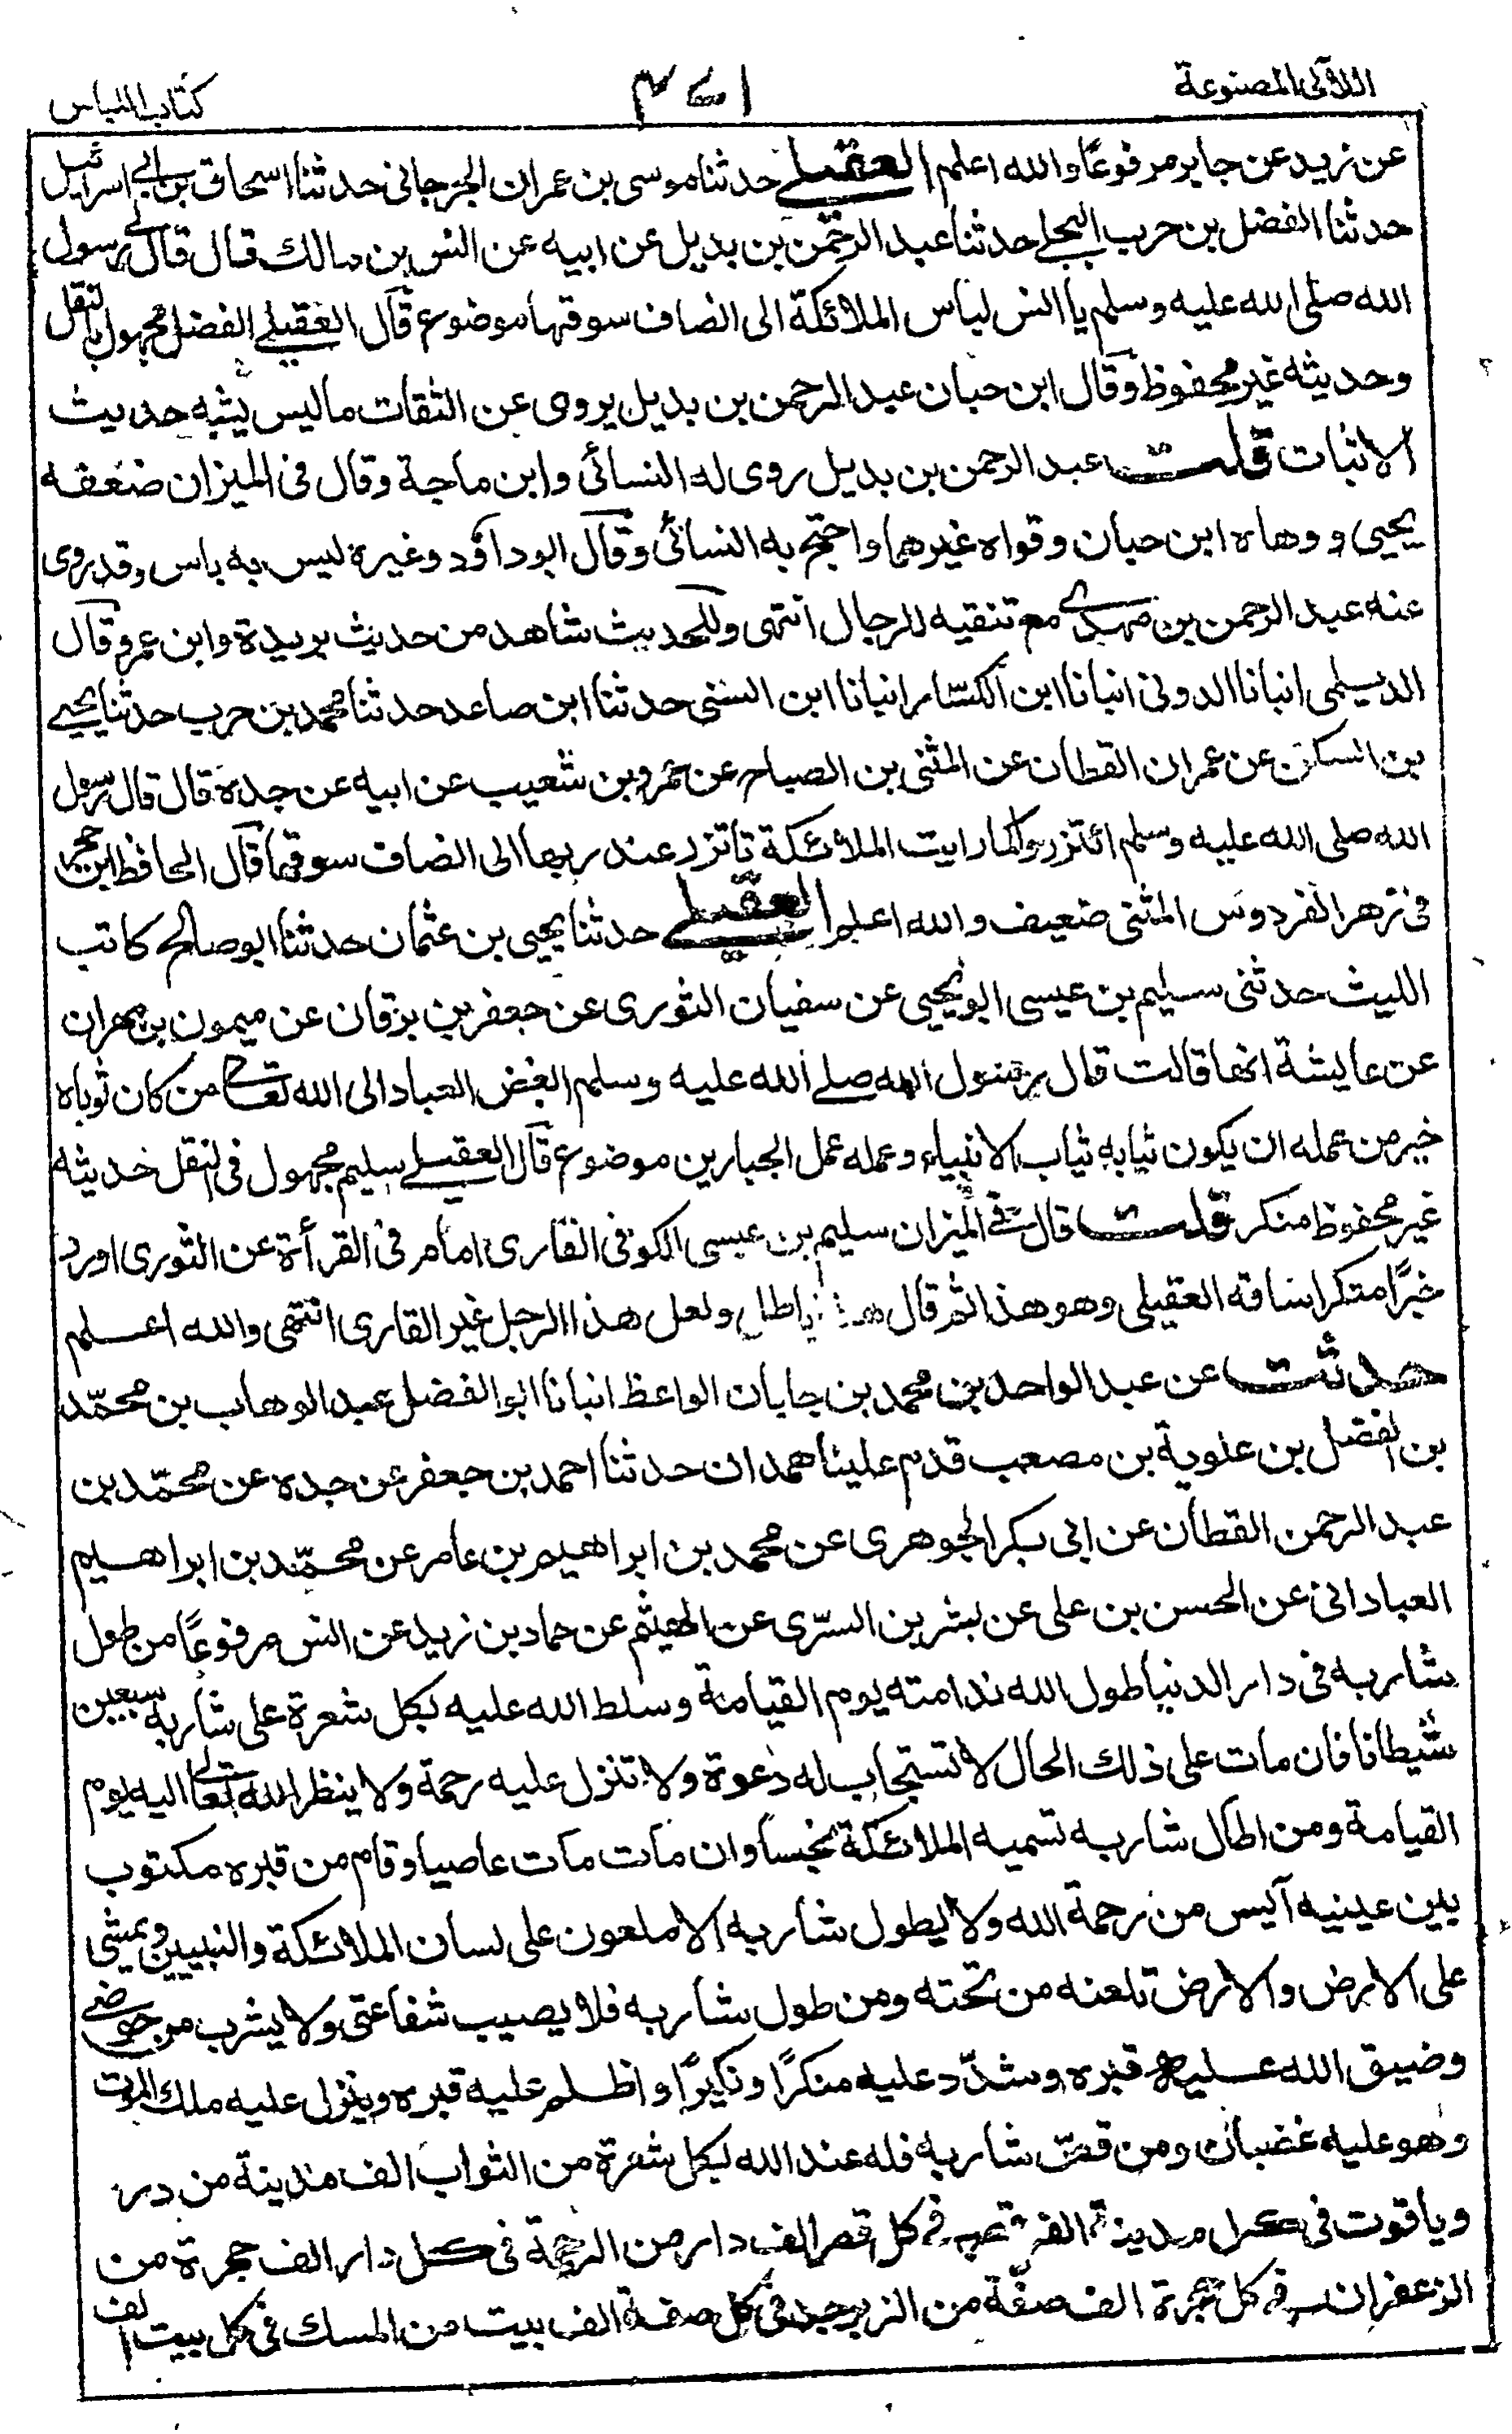 اللآلی المصنوعة
كتاب اللباس
عن زيد عن جابر مرفوعًا والله اعلم العقيلے حدثنا موسى بن عمران الجرجاني حدثنا اسحاق بن ابی اسرائيل
حدثنا الفضل بن حرب البجلے حدثنا عبد الرحمن بن بديل عن ابيه عن انس بن مالك قال قال لے رسول
الله صلى الله عليه وسلم يا انس لباس الملائكة الى انصاف سوقها موضوع قال العقيلے الفضل مجهول بالنقل
وحديثه غير محفوظ وقال ابن حبان عبد الرحمن بن بديل يروى عن الثقات ما ليس يشبه حديث
الاثبات قلت عبد الرحمن بن بديل روى له النسائى وابن ماجة وقال فى الميزان ضعفه
يحيى ووهاه ابن حبان وقواه غيرهما واحتج به النسائى وقال ابو داؤد وغيره ليس به باس وقد روى
عنه عبد الرحمن بن مهدے مع تنقيه للرجال انتهى وللحديث شاهد من حديث بريدة وابن عمرو قال
الديلمى انبانا الدونى انبانا ابن الكسار انبانا ابن السنى حدثنا ابن صاعد حدثنا محمد بن حرب حدثنا يحيے
بن السكن عن عمران القطان عن المثنى بن الصباح عن عمرو بن شعيب عن ابيه عن جده قال قال رسول
الله صلى الله عليه وسلم ائتزروا كما رايت الملائكة تاتزر عند ربها الى انصاف سوقها قال الحافظ ابن حجر
فى زهر الفردوس المثنى ضعيف والله اعلم العقيلے حدثنا يحيى بن عثمان حدثنا ابو صالح كاتب
الليث حدثنى سليم بن عيسى ابو يحيى عن سفيان الثورى عن جعفر بن برقان عن ميمون بن مهران
عن عايشة انها قالت قال رسول الله صلے الله عليه وسلم ابغض العباد الى الله تعالے من كان ثوباه
خير من عمله ان يكون ثيابه ثياب الانبياء وعمله عمل الجبارين موضوع قال العقيلے سليم مجهول فى النقل حديثه
غير محفوظ منكر قلت قال فے الميزان سليم بن عيسى الكوفى القارى امام فى القرأة عن الثورى اورد
خبرًا منكرا ساقه العقيلى وهو هذا ثم قال باطل ولعل هذا الرجل غير القارى انتهى والله اعلم
حدثت عن عبد الواحد بن محمد بن جابان الواعظ انبانا ابو الفضل عبد الوهاب بن محمّد
بن الفضل بن علوية بن مصعب قدم علينا همدان حدثنا احمد بن جعفر عن جده عن محمّد بن
عبد الرحمن القطان عن ابى بكر الجوهرى عن محمد بن ابراهيم بن عامر عن محمّد بن ابراهيم
العبادانى عن الحسن بن على عن بشر بن السرّى عن الهيثم عن حماد بن زيد عن انس مرفوعًا من طول
شاربه فى دار الدنيا طول الله ندامته يوم القيامة وسلط الله عليه بكل شعرة على شاربه سبعين
شيطانا فان مات على ذلك الحال لا تستجاب له دعوة ولا تنزل عليه رحمة ولا ينظر الله تعالے اليه يوم
القيامة ومن اطال شاربه تسميه الملائكة نجسا وان مات مات عاصيا وقام من قبره مكتوب
بين عينيه آيس من رحمة الله ولا يطول شاربه الا ملعون على لسان الملائكة والنبيين ويمشى
على الارض والارض تلعنه من تحته ومن طول شاربه فلا يصيب شفاعتى ولا يشرب من حوضے
وضيق الله عليه قبره وشدّد عليه منكرًا ونكيرًا واظلم عليه قبره وينزل عليه ملك الموت
وهو عليه غضبان ومن قصّ شاربه فله عند الله لكل شعرة من الثواب الف مدينة من در
وياقوت فى كل مدينة الف قصر فے كل قصر الف دار من الرحمة فى كل دار الف حجرة من
الزعفران فے كل حجرة الف صفّة من الزبرجد فى كل صفة الف بيت من المسك فى كل بيت الف